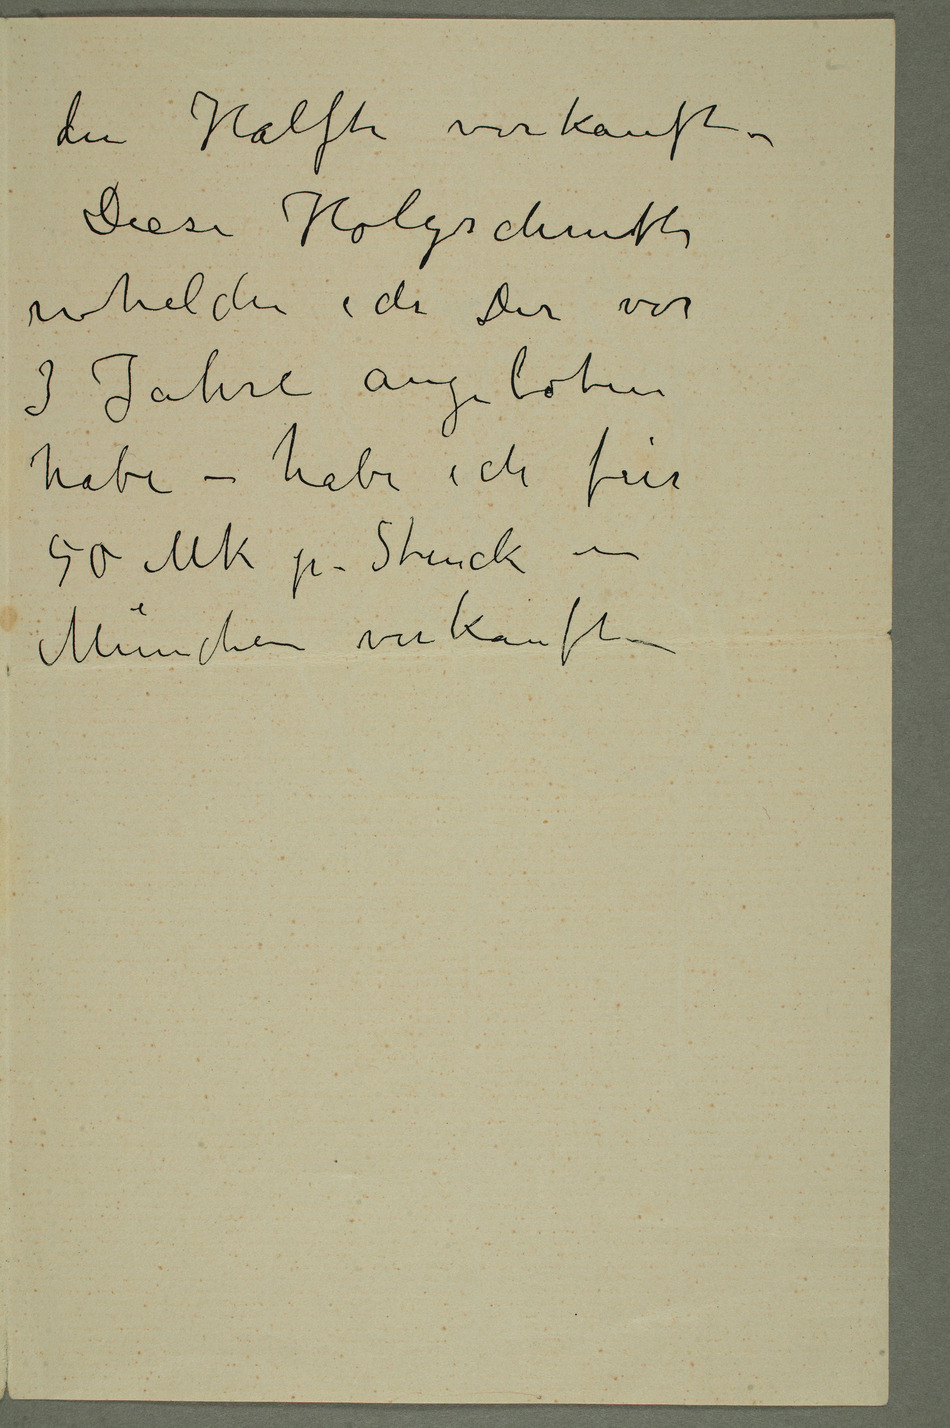 den Hälfte verkauft –
Diese Holzschnitte
welche ich Dir vor
3 Jahre angeboten
habe – habe ich für
50 Mk p. Stück in
München verkauft –